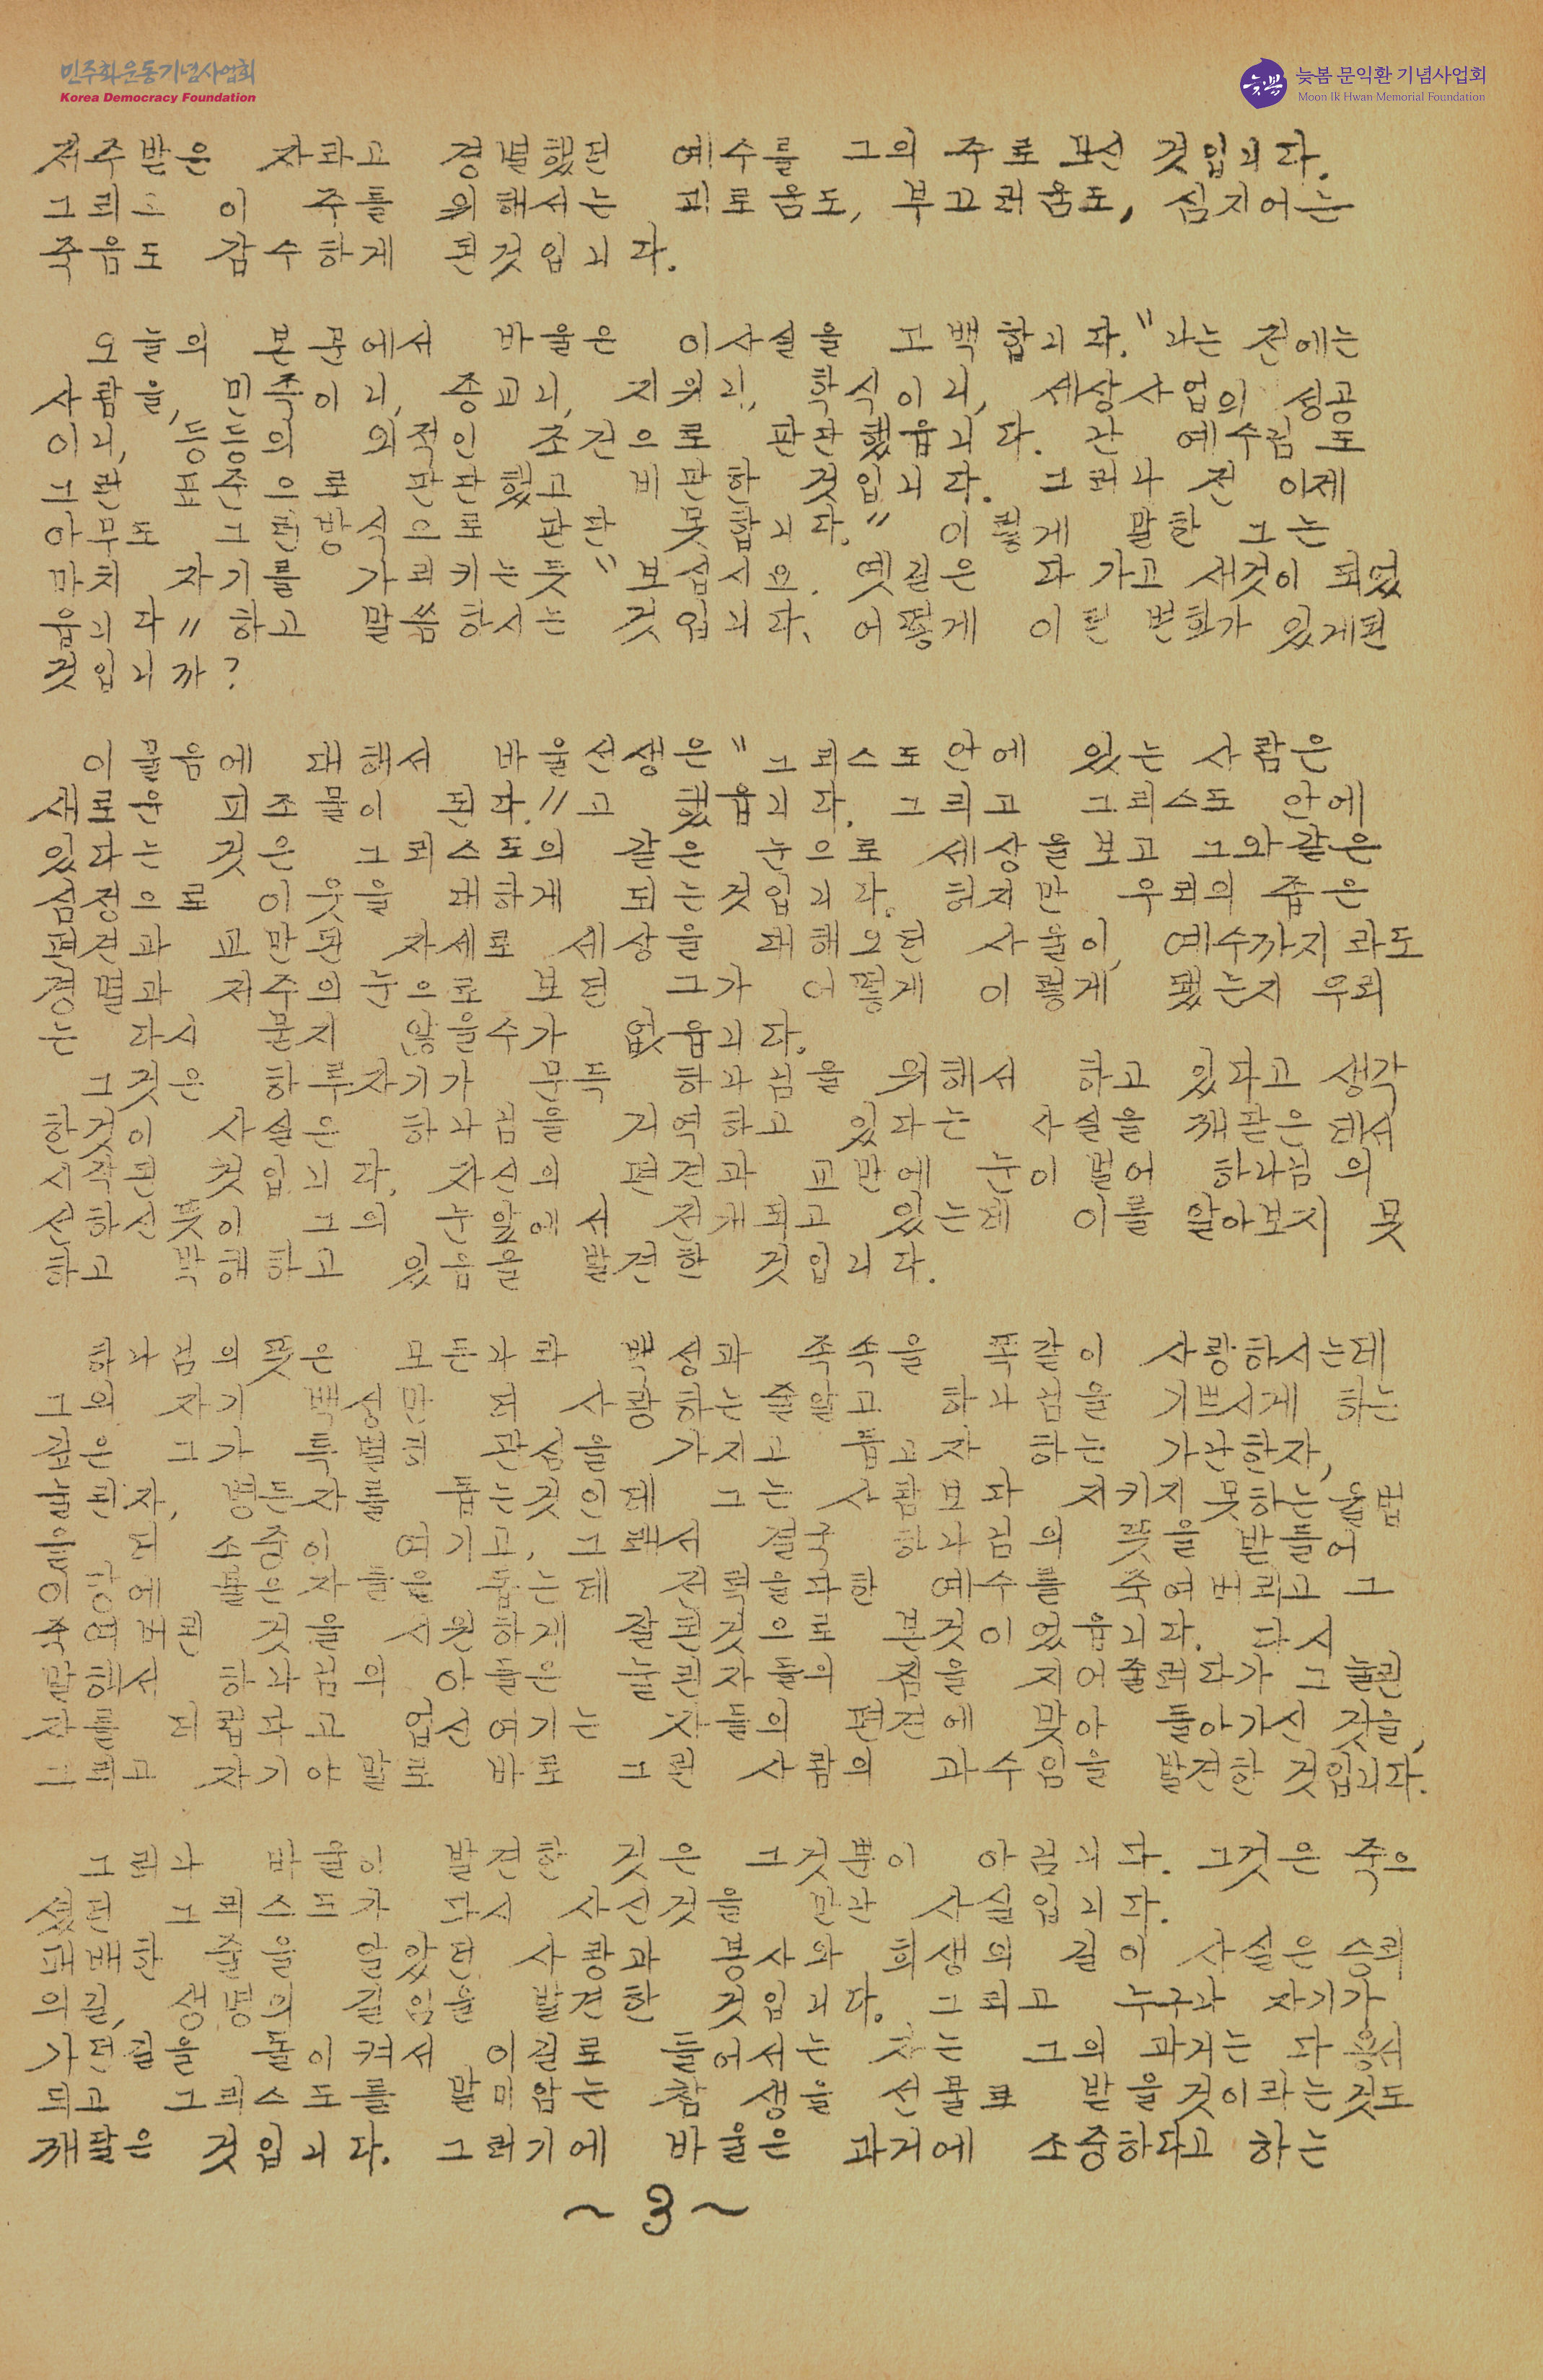 민주화운동기념사업회
Korea Democracy Foundation
늦봄 문익환 기념사업회
Moon Ik Hwan Memorial Foundation
저주받은 자라고 경멸했던 예수를 그의 주로 모신 것입니다.
그리고 이 주를 위해서는 괴로움도, 부끄러움도, 심지어는
죽음도 감수하게 된것입니다.
오늘의 본문에서 바울은 이사실을 고백합니다. "나는 전에는
사람을, 민족이니, 종교니, 지위니, 학식이니, 세상사업의 성공
이니, 등등의 외적인 조건으로 판단했읍니다. 난 예수님도
그런 표준으로 판단했고 비판한 것입니다. 그러나 전 이제
아무도 그런방식으로 판단 못합니다." 이렇게 말한 그는
마치 자기를 가리키는듯 "보십시요. 옛것은 다 가고 새것이 되었
읍니다" 하고 말씀하시는 것입니다. 어떻게 이런 변화가 있게된
것입니까?
이 물음에 대해서 바울선생은 "그리스도안에 있는 사람은
새로운 피조물이 된다."고 했읍니다. 그리고 그리스도 안에
있다는 것은 그리스도의 같은 눈으로 세상을보고 그와같은
심정으로 이웃을 대하게 되는것입니다. 허지만 우리의 좁은
편견과 교만된 자세로 세상을 대해오던 사울이, 예수까지라도
경멸과 저주의눈으로 보던 그가 어떻게 이렇게 됐는지 우리
는 다시 묻지 않을수가 없읍니다.
그것은 하루자기가 문득 하나님을 위해서 하고 있다고 생각
한것이 사실은 하나님을 거역하고 있다는 사실을 깨달은데서
시작된 것입니다. 자신의 편견과 교만에 눈이 멀어 하나님의
선하신뜻이 그의 눈앞에서 전개되고 있는데 이를 알아보지 못
하고 박해하고 있음을 발견한 것입니다.
하나님의뜻은 모든나라 백성과 족속을 똑같이 사랑하시는데
그의 자기 백성만 더 사랑하는줄알고 하나님을 기쁘시게 하는
것은 그가 특별히 관심을 가지고 돕고자 하는 가난한자,
눌린자, 병든자를 돕는것인데 그는 사람보다 지키지 못하는 율법
더 소중히 여기고, 그래서 결국 하나님의 뜻을 받들어
자들을 돕는데 전력을다한 예수를 죽여버리고 그
죽여버린 것을 시원하게 잘된것으로 본것이었읍니다. 다시
말해서 하나님의 아들은 눌린자들의 짐을 지어줄려다가 그 눌린
자를 더럽다고 업신여기는 자들의 편견에 맞아 돌아가신 것을,
그리고 자기야말로 바로 그런 사람의 과수임을 발견한 것입니다.
그러나 바울이 발견한 것은 그것뿐이 아닙니다. 그것은 죽으
셨던 그리스도가 다시 사신것을 만난 사실입니다.
패배한 줄을 알았던 사랑과 봉사와 희생의 길이 사실은 승리
의길, 생명의 길임을 발견한 것입니다. 그리고 누구나 자기가
가던길을 돌이켜서 이길로 들어서는 자는 그의 과거는 다 용서
되고 그리스도를 말미암는 참 생을 선물로 받을것이라는것도
깨달은 것입니다. 그러기에 바울은 과거에 소중하다고 하는
~3~